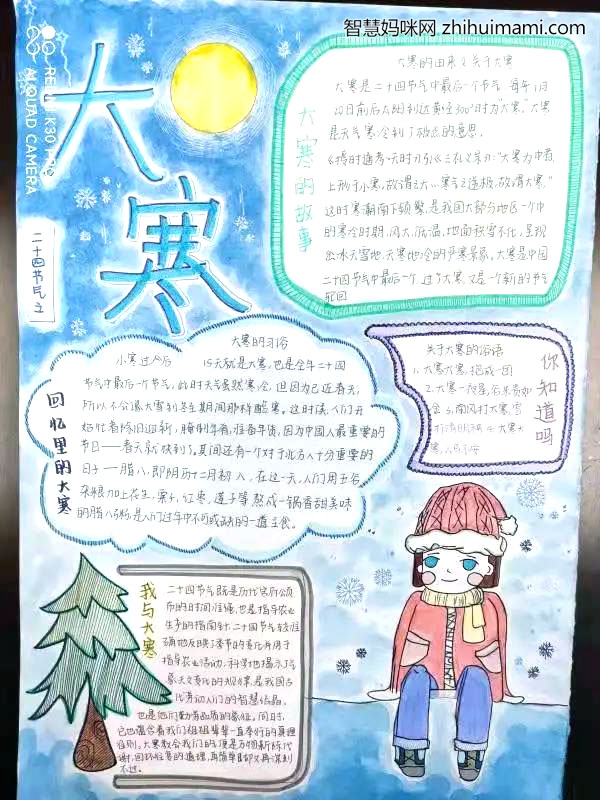 智慧妈咪网 zhihuimami.com
REDMI K30 PRO
AI QUAD CAMERA
大寒
二十四节气之
大寒的故事
大寒的由来及关于大寒
大寒是二十四节气中最后一个节气 每年1月
20日前后太阳到达黄经300°时为"大寒"。大寒
是天气寒冷到了极点的意思。
《授时通考·天时》引《三礼义宗》:"大寒为中者
上形于小寒,故谓之大…寒气之逆极,故谓大寒。"
这时寒潮南下频繁,是我国大部分地区一年中
的寒冷时期,风大,低温,地面积雪不化,呈现
出冰天雪地、天寒地冷的严寒景象。大寒是中国
二十四节气中最后一个,过了大寒,又是一个新的节气
轮回
回忆里的大寒
大寒的习俗
小寒过后 15天就是大寒,也是全年二十四
节气中最后一个节气,此时天气虽然寒冷,但因为已近春天,
所以不会像大雪到冬至期间那样酷寒。这时候,人们开
始忙着除旧迎新,腌制年肴,准备年货,因为中国人最重要的
节日——春天就快到了。其间还有一个对于北方人十分重要的
日子——腊八,即阴历十二月初八。在这一天,人们用五谷
杂粮加上花生,栗子,红枣,莲子等熬成一锅香甜美味
的腊八粥,是人们过年中不可或缺的一道主食。
你知道吗
关于大寒的俗语
1、大寒大寒,抱成一团
2、大寒一夜星,谷米贵如
金 3、南风打大寒,雪
大寒大
我与大寒
二十四节气既是历代官府颁
布的时间准绳,也是指导农业
生产的指南针,二十四节气较准
确地反映了季节的变化并用于
指导农业活动,科学地揭示了气
象天文变化的规律,是我国古
代劳动人们的智慧结晶,
也是他们勤劳品质的象征。同时,
它也蕴含着我们祖祖辈辈一直奉行的真理
准则。大寒教会我们的便是万物新陈代
谢,回环往复的道理,再简单却又再深刻
不过。